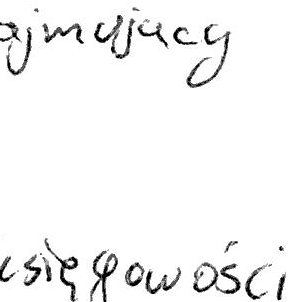 ajmujacy
sięgowości